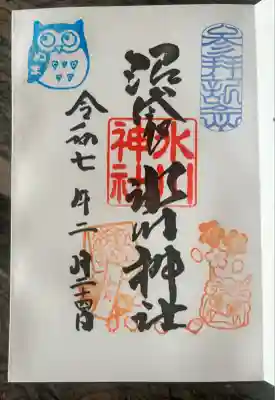 参拝記念
沼袋氷川神社
氷川神社
令和七年二月二十四日
ぬま